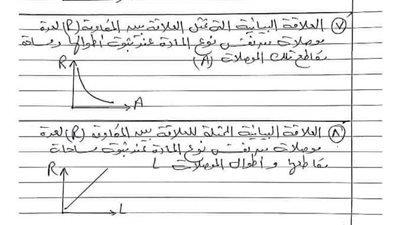 ٧) العلاقة البيانية التى تمثل العلاقة بين المقاومة (R) لعدة
موصلات من نفس نوع المادة عند ثبوت أطوالها ومساحة
مقاطع تلك الموصلات (A)
R
A
٨) العلاقة البيانية الممثلة للعلاقة بين المقاومة (R) لعدة
موصلات من نفس نوع المادة عند ثبوت مساحات
مقاطعها وأطوال الموصلات L
R
L